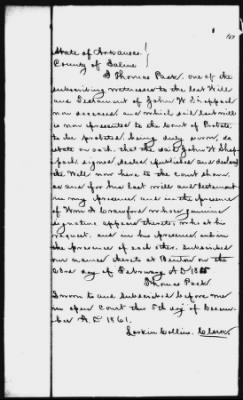 State of Arkansas }
County of Saline
I Thomas Pack one of the
subscribing witnesses to the last Will
and Testament of John W. Sheppach
now deceased and which said last will
is now presented to the Court of Probate
to be probated, being duly sworn, do
state on oath that the said John W Shep-
pach signed sealed published and declared
the Will now here to the court shown
as and for his last will and testament
in my presence and in the presence
of Wm A Crawford whose genuine
signature appears thereto, who at his
request and in his presence and in
the presence of each other, subscribed
our names thereto at Benton on the
day of February A.D
Thomas Pack
Sworn to and subscribed before me
in open Court the 5th day of Decem-
ber A.D 1861.
Larkin Collins. Clerk